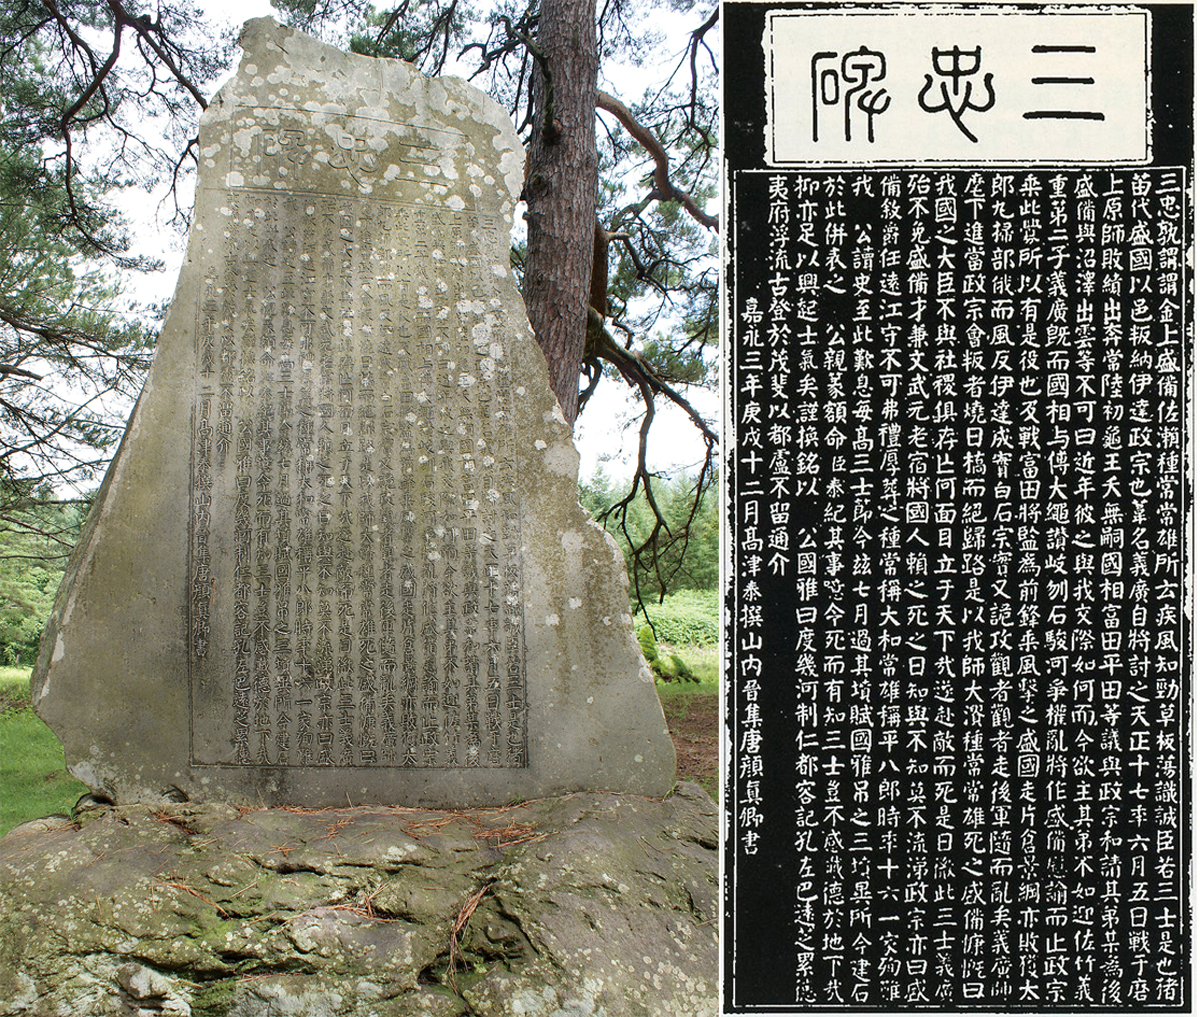 三忠碑
三忠孰謂謂金上盛備佐瀨種常常雄所云疾風知勁草板蕩識誠臣若三士是也猪
苗代盛國以邑叛納伊達政宗也葦名義廣自將討之天正十七年六月五日戰于磨
上原師敗績出奔常陸初龜王夭無嗣國相富田平田等議與政宗和請其弟某為後
盛備與沼澤出雲等不可曰近年彼之與我交際如何而今欲主其弟不如迎佐竹義
重第二子義廣既而國相与傅大繩讃岐刎石駿河爭權亂將作盛備慰諭而止政宗
乗此釁所以有是役也及戰富田將監為前鋒乗風擊之盛國走片倉景綱亦敗獲太
郎丸掃部俄而風反伊達成實白石宗實又詭攻觀者觀者走後軍隨而亂矣義廣帥
麾下進當政宗會叛者燒日橋而絕歸路是以我師大潰種常常雄死之盛備慷慨曰
我國之大臣不與社稷俱存亡何面目立于天下哉遂赴敵而死是日微此三士義廣
殆不免盛備才兼文武元老宿將國人賴之死之日知與不知莫不流涕政宗亦曰盛
備敘爵任遠江守不可弗禮厚葬之種常稱大和常雄稱平八郎時年十六一家殉難
我　公讀史至此歎息每髙三士節今茲七月過其墳賦國雅吊之三墳異所今建石
於此併表之　公親篆額命臣泰紀其事噫令死而有知三士豈不感戴德於地下哉
抑亦足以興起士氣矣謹撰銘以　公國雅曰度幾河制仁都容記孔左巴遠之累德
夷府浮流古登於茂斐以都盧不留通介
嘉永三年庚戌十二月髙津泰撰山内晉集唐顏真卿書